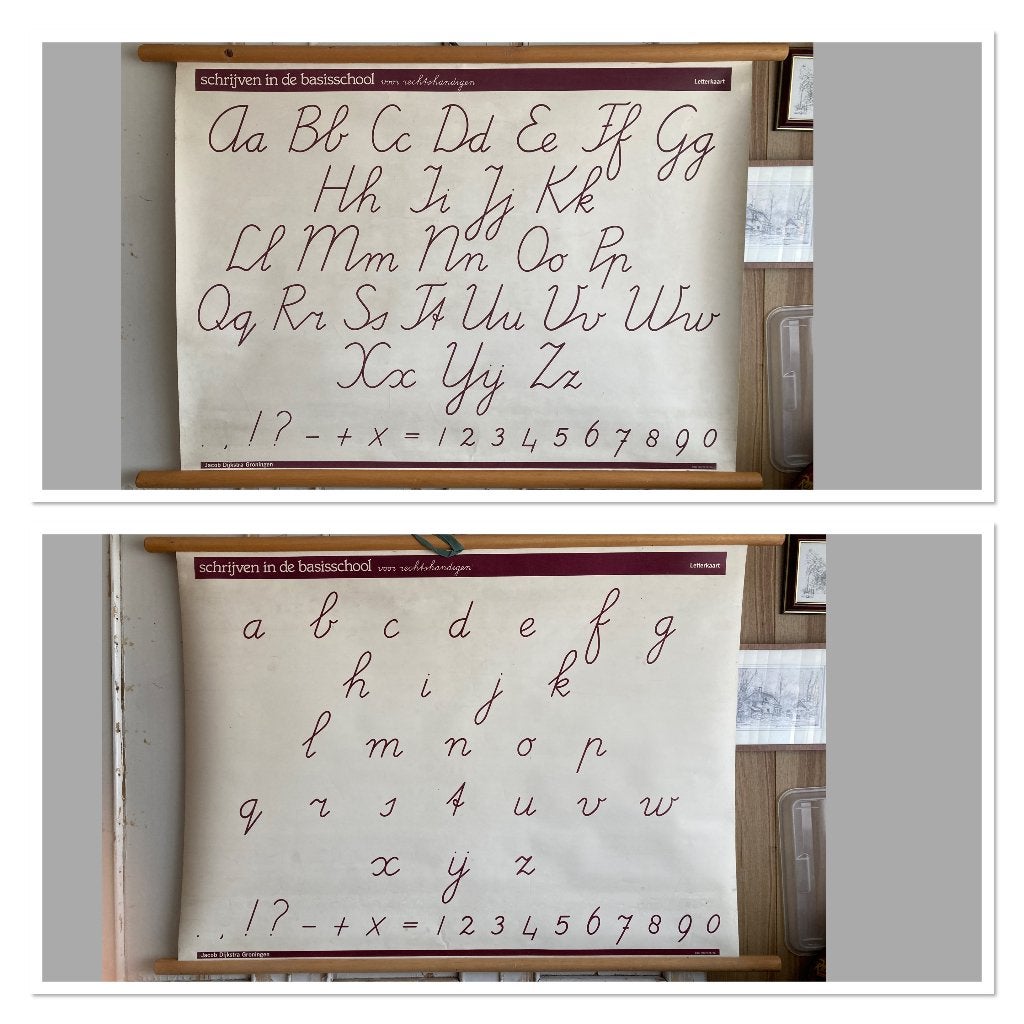 schrijven in de basisschool voor rechtshandigen Letterkaart
Aa Bb Cc Dd Ee Ff Gg
Hh Ii Jj Kk
Ll Mm Nn Oo Pp
Qq Rr Ss Tt Uu Vv Ww
Xx Yij Zz
. , ! ? - + x = 1 2 3 4 5 6 7 8 9 0
Jacob Dijkstra Groningen
schrijven in de basisschool voor rechtshandigen Letterkaart
a b c d e f g
h i j k
l m n o p
q r s t u v w
x ij z
. , ! ? - + x = 1 2 3 4 5 6 7 8 9 0
Jacob Dijkstra Groningen